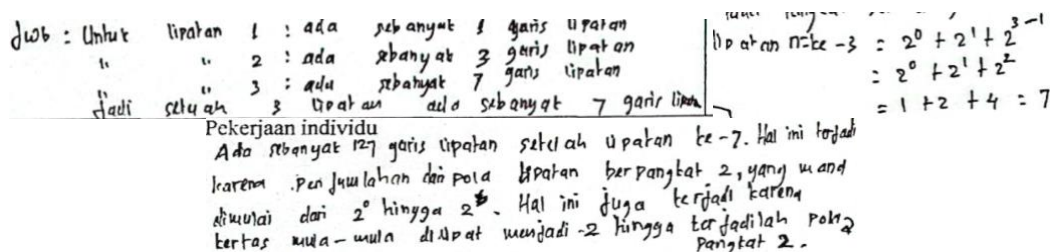 Jwb : Untuk lipatan 1 : ada sebanyak 1 garis lipatan
" " 2 : ada sebanyak 3 garis lipatan
" " 3 : ada sebanyak 7 garis lipatan
Jadi setelah 3 lipatan ada sebanyak 7 garis lipatan
lipatan n=ke-3 = 2⁰ + 2¹ + 2³⁻¹
= 2⁰ + 2¹ + 2²
= 1 + 2 + 4 = 7
Pekerjaan individu
Ada sebanyak 127 garis lipatan setelah lipatan ke-7. Hal ini terjadi
karena penjumlahan dari pola lipatan berpangkat 2, yang mana
dimulai dari 2⁰ hingga. Hal ini juga terjadi karena
kertas mula-mula dilipat menjadi -2 hingga terjadilah pola
Pangkat 2.